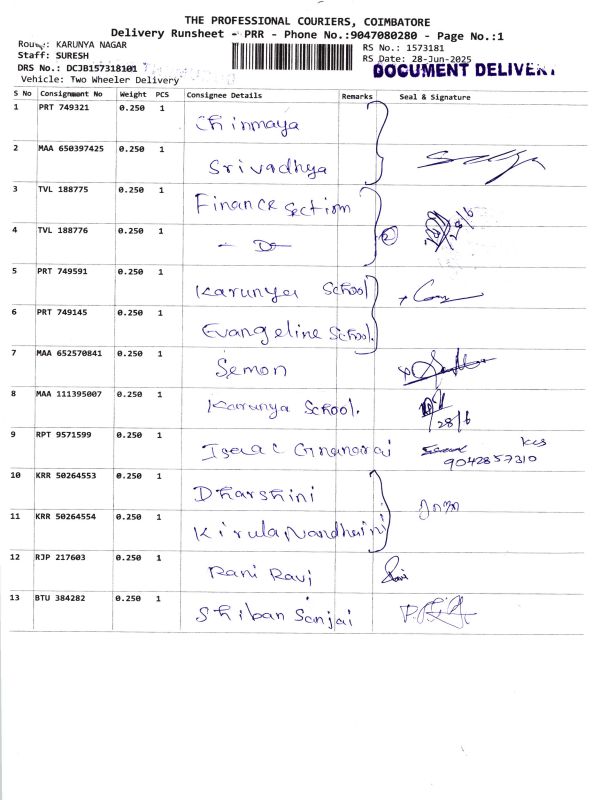 THE PROFESSIONAL COURIERS, COIMBATORE
Delivery Runsheet - PRR - Phone No.:9047080280 - Page No.:1
Route: KARUNYA NAGAR
RS No.: 1573181
Staff: SURESH
RS Date: 28-Jun-2025
DRS No.: DCJB157318101
DOCUMENT DELIVERY
Vehicle: Two Wheeler Delivery
S No Consignment No Weight PCS Consignee Details Remarks Seal & Signature
1 PRT 749321 0.250 1 Chinmaya
2 MAA 650397425 0.250 1 Srivadhya
3 TVL 188775 0.250 1 Finance Section
4 TVL 188776 0.250 1 - Do - 2 28/6
5 PRT 749591 0.250 1 Karunya School
6 PRT 749145 0.250 1 Evangeline School.
7 MAA 652570841 0.250 1 Semon
8 MAA 111395007 0.250 1 Karunya School. 28/6
9 RPT 9571599 0.250 1 Isaac Gnanaraj kcs
9042857310
10 KRR 50264553 0.250 1 Dharshini
11 KRR 50264554 0.250 1 Kirula Nandhini
12 RJP 217603 0.250 1 Rani Ravi
13 BTU 384282 0.250 1 Shiban Sanjai